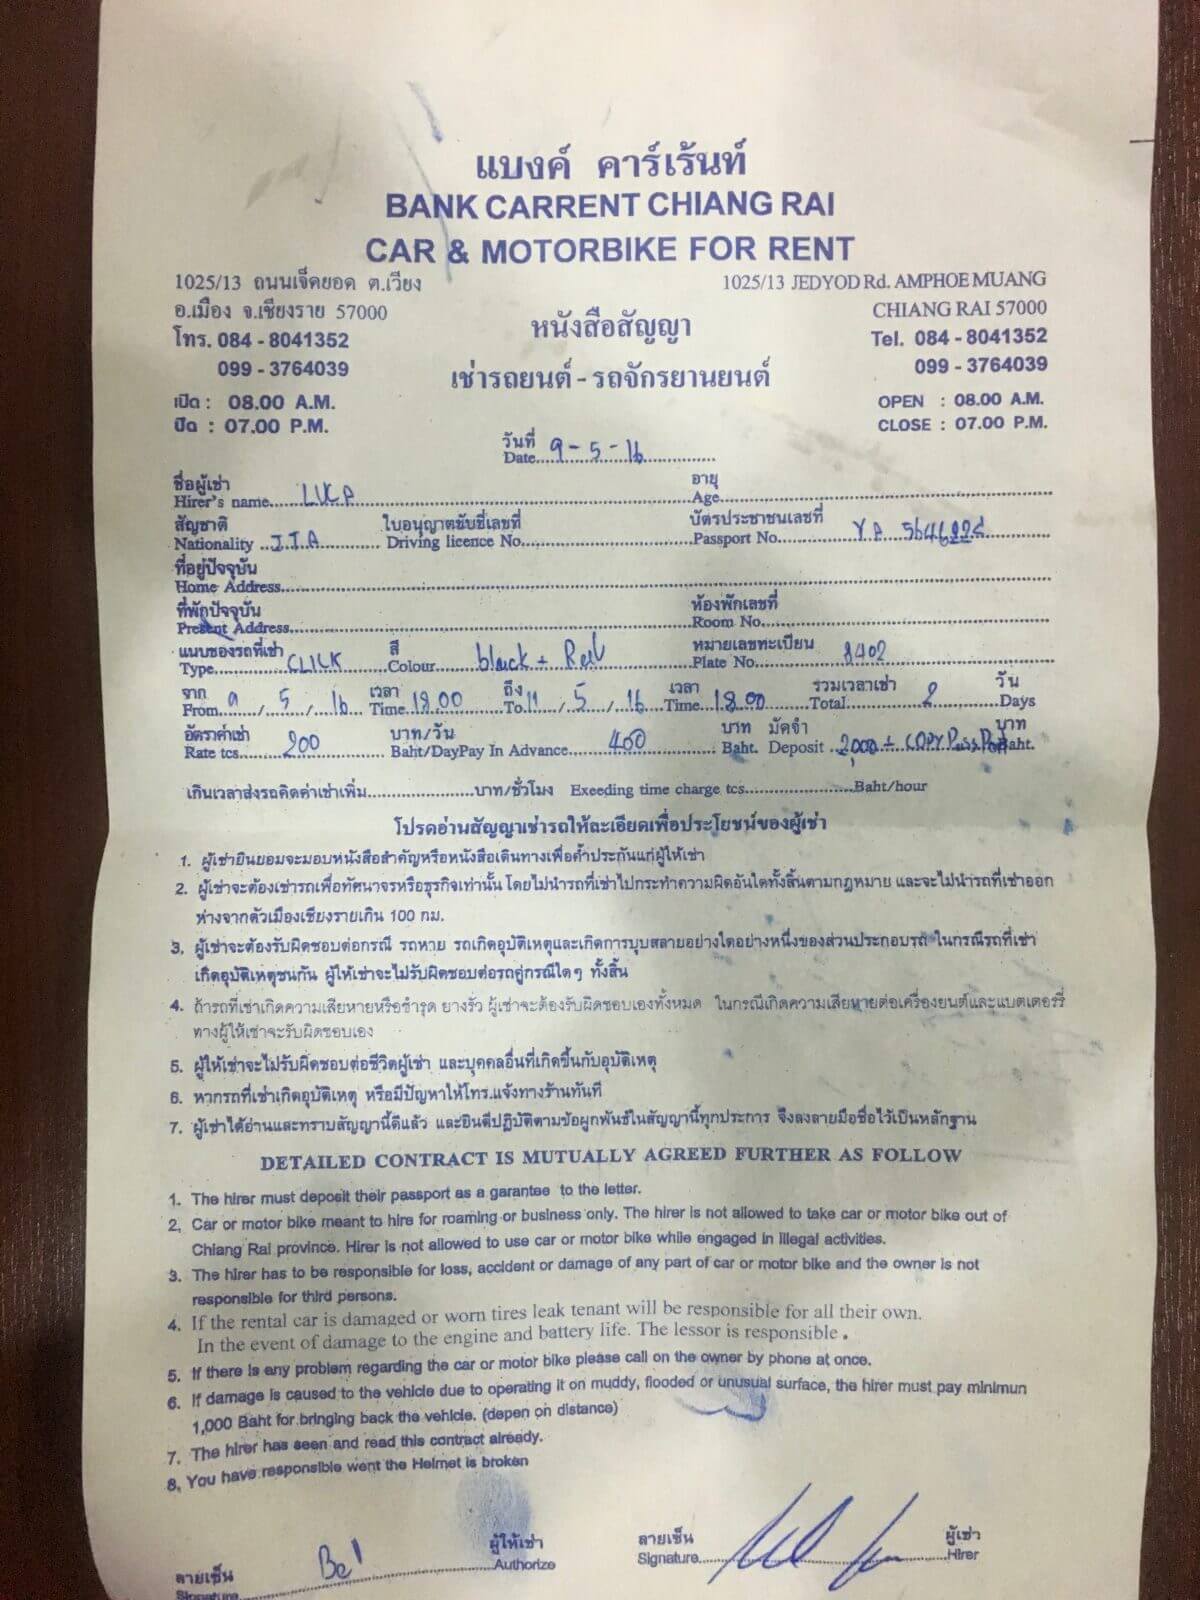 แบงค์ คาร์เร้นท์
BANK CARRENT CHIANG RAI
CAR & MOTORBIKE FOR RENT
1025/13 ถนนเจ็ดยอด ต.เวียง
อ.เมือง จ.เชียงราย 57000
โทร. 084 - 8041352
099 - 3764039
เปิด : 08.00 A.M.
ปิด : 07.00 P.M.
หนังสือสัญญา
เช่ารถยนต์ - รถจักรยานยนต์
1025/13 JEDYOD Rd. AMPHOE MUANG
CHIANG RAI 57000
Tel. 084 - 8041352
099 - 3764039
OPEN : 08.00 A.M.
CLOSE : 07.00 P.M.
วันที่
Date 9 - 5 - 16
ชื่อผู้เช่า อายุ
Hirer's name Age
สัญชาติ ใบอนุญาตขับขี่เลขที่ บัตรประชาชนเลขที่
Nationality ITA Driving licence No. Passport No.
ที่อยู่ปัจจุบัน
Home Address
ที่พักปัจจุบัน ห้องพักเลขที่
Present Address Room No.
แบบของรถที่เช่า สี หมายเลขทะเบียน
Type CLICK Colour black + Red Plate No. 8402
จาก เวลา ถึง เวลา รวมเวลาเช่า วัน
From 9 / 5 / 16 Time 18.00 To 11 / 5 / 16 Time 18.00 Total 2 Days
อัตราค่าเช่า บาท/วัน บาท มัดจำ บาท
Rate tcs 200 Baht/Day Pay In Advance 400 Baht. Deposit 2,000 + COPY PassPort Baht.
เกินเวลาส่งรถคิดค่าเช่าเพิ่ม บาท/ชั่วโมง Exeeding time charge tcs Baht/hour
โปรดอ่านสัญญาเช่ารถให้ละเอียดเพื่อประโยชน์ของผู้เช่า
1. ผู้เช่ายินยอมจะมอบหนังสือสำคัญหรือหนังสือเดินทางเพื่อค้ำประกันแก่ผู้ให้เช่า
2. ผู้เช่าจะต้องเช่ารถเพื่อทัศนาจรหรือธุรกิจเท่านั้น โดยไม่นำรถที่เช่าไปกระทำความผิดอันใดทั้งสิ้นตามกฎหมาย และจะไม่นำรถที่เช่าออก
ห่างจากตัวเมืองเชียงรายเกิน 100 กม.
3. ผู้เช่าจะต้องรับผิดชอบต่อกรณี รถหาย รถเกิดอุบัติเหตุและเกิดการบุบสลายอย่างใดอย่างหนึ่งของส่วนประกอบรถ ในกรณีรถที่เช่า
เกิดอุบัติเหตุชนกัน ผู้ให้เช่าจะไม่รับผิดชอบต่อรถคู่กรณีใดๆ ทั้งสิ้น
4. ถ้ารถที่เช่าเกิดความเสียหายหรือชำรุด ยางรั่ว ผู้เช่าจะต้องรับผิดชอบเองทั้งหมด ในกรณีเกิดความเสียหายต่อเครื่องยนต์และแบตเตอร์รี่
ทางผู้ให้เช่าจะรับผิดชอบเอง
5. ผู้ให้เช่าจะไม่รับผิดชอบต่อชีวิตผู้เช่า และบุคคลอื่นที่เกิดขึ้นกับอุบัติเหตุ
6. หากรถที่เช่าเกิดอุบัติเหตุ หรือมีปัญหาให้โทร.แจ้งทางร้านทันที
7. ผู้เช่าได้อ่านและทราบสัญญานี้ดีแล้ว และยินดีปฏิบัติตามข้อผูกพันธ์ในสัญญานี้ทุกประการ จึงลงลายมือชื่อไว้เป็นหลักฐาน
DETAILED CONTRACT IS MUTUALLY AGREED FURTHER AS FOLLOW
1. The hirer must deposit their passport as a garantee to the letter.
2. Car or motor bike meant to hire for roaming or business only. The hirer is not allowed to take car or motor bike out of
Chiang Rai province. Hirer is not allowed to use car or motor bike while engaged in illegal activities.
3. The hirer has to be responsible for loss, accident or damage of any part of car or motor bike and the owner is not
responsible for third persons.
4. If the rental car is damaged or worn tires leak tenant will be responsible for all their own.
In the event of damage to the engine and battery life. The lessor is responsible .
5. If there is any problem regarding the car or motor bike please call on the owner by phone at once.
6. If damage is caused to the vehicle due to operating it on muddy, flooded or unusual surface, the hirer must pay minimun
1,000 Baht for bringing back the vehicle. (depen on distance)
7. The hirer has seen and read this contract already.
8. You have responsible went the Helmet is broken
ลายเซ็น ผู้ให้เช่า
Signature Authorize
ลายเซ็น ผู้เช่า
Signature Hirer